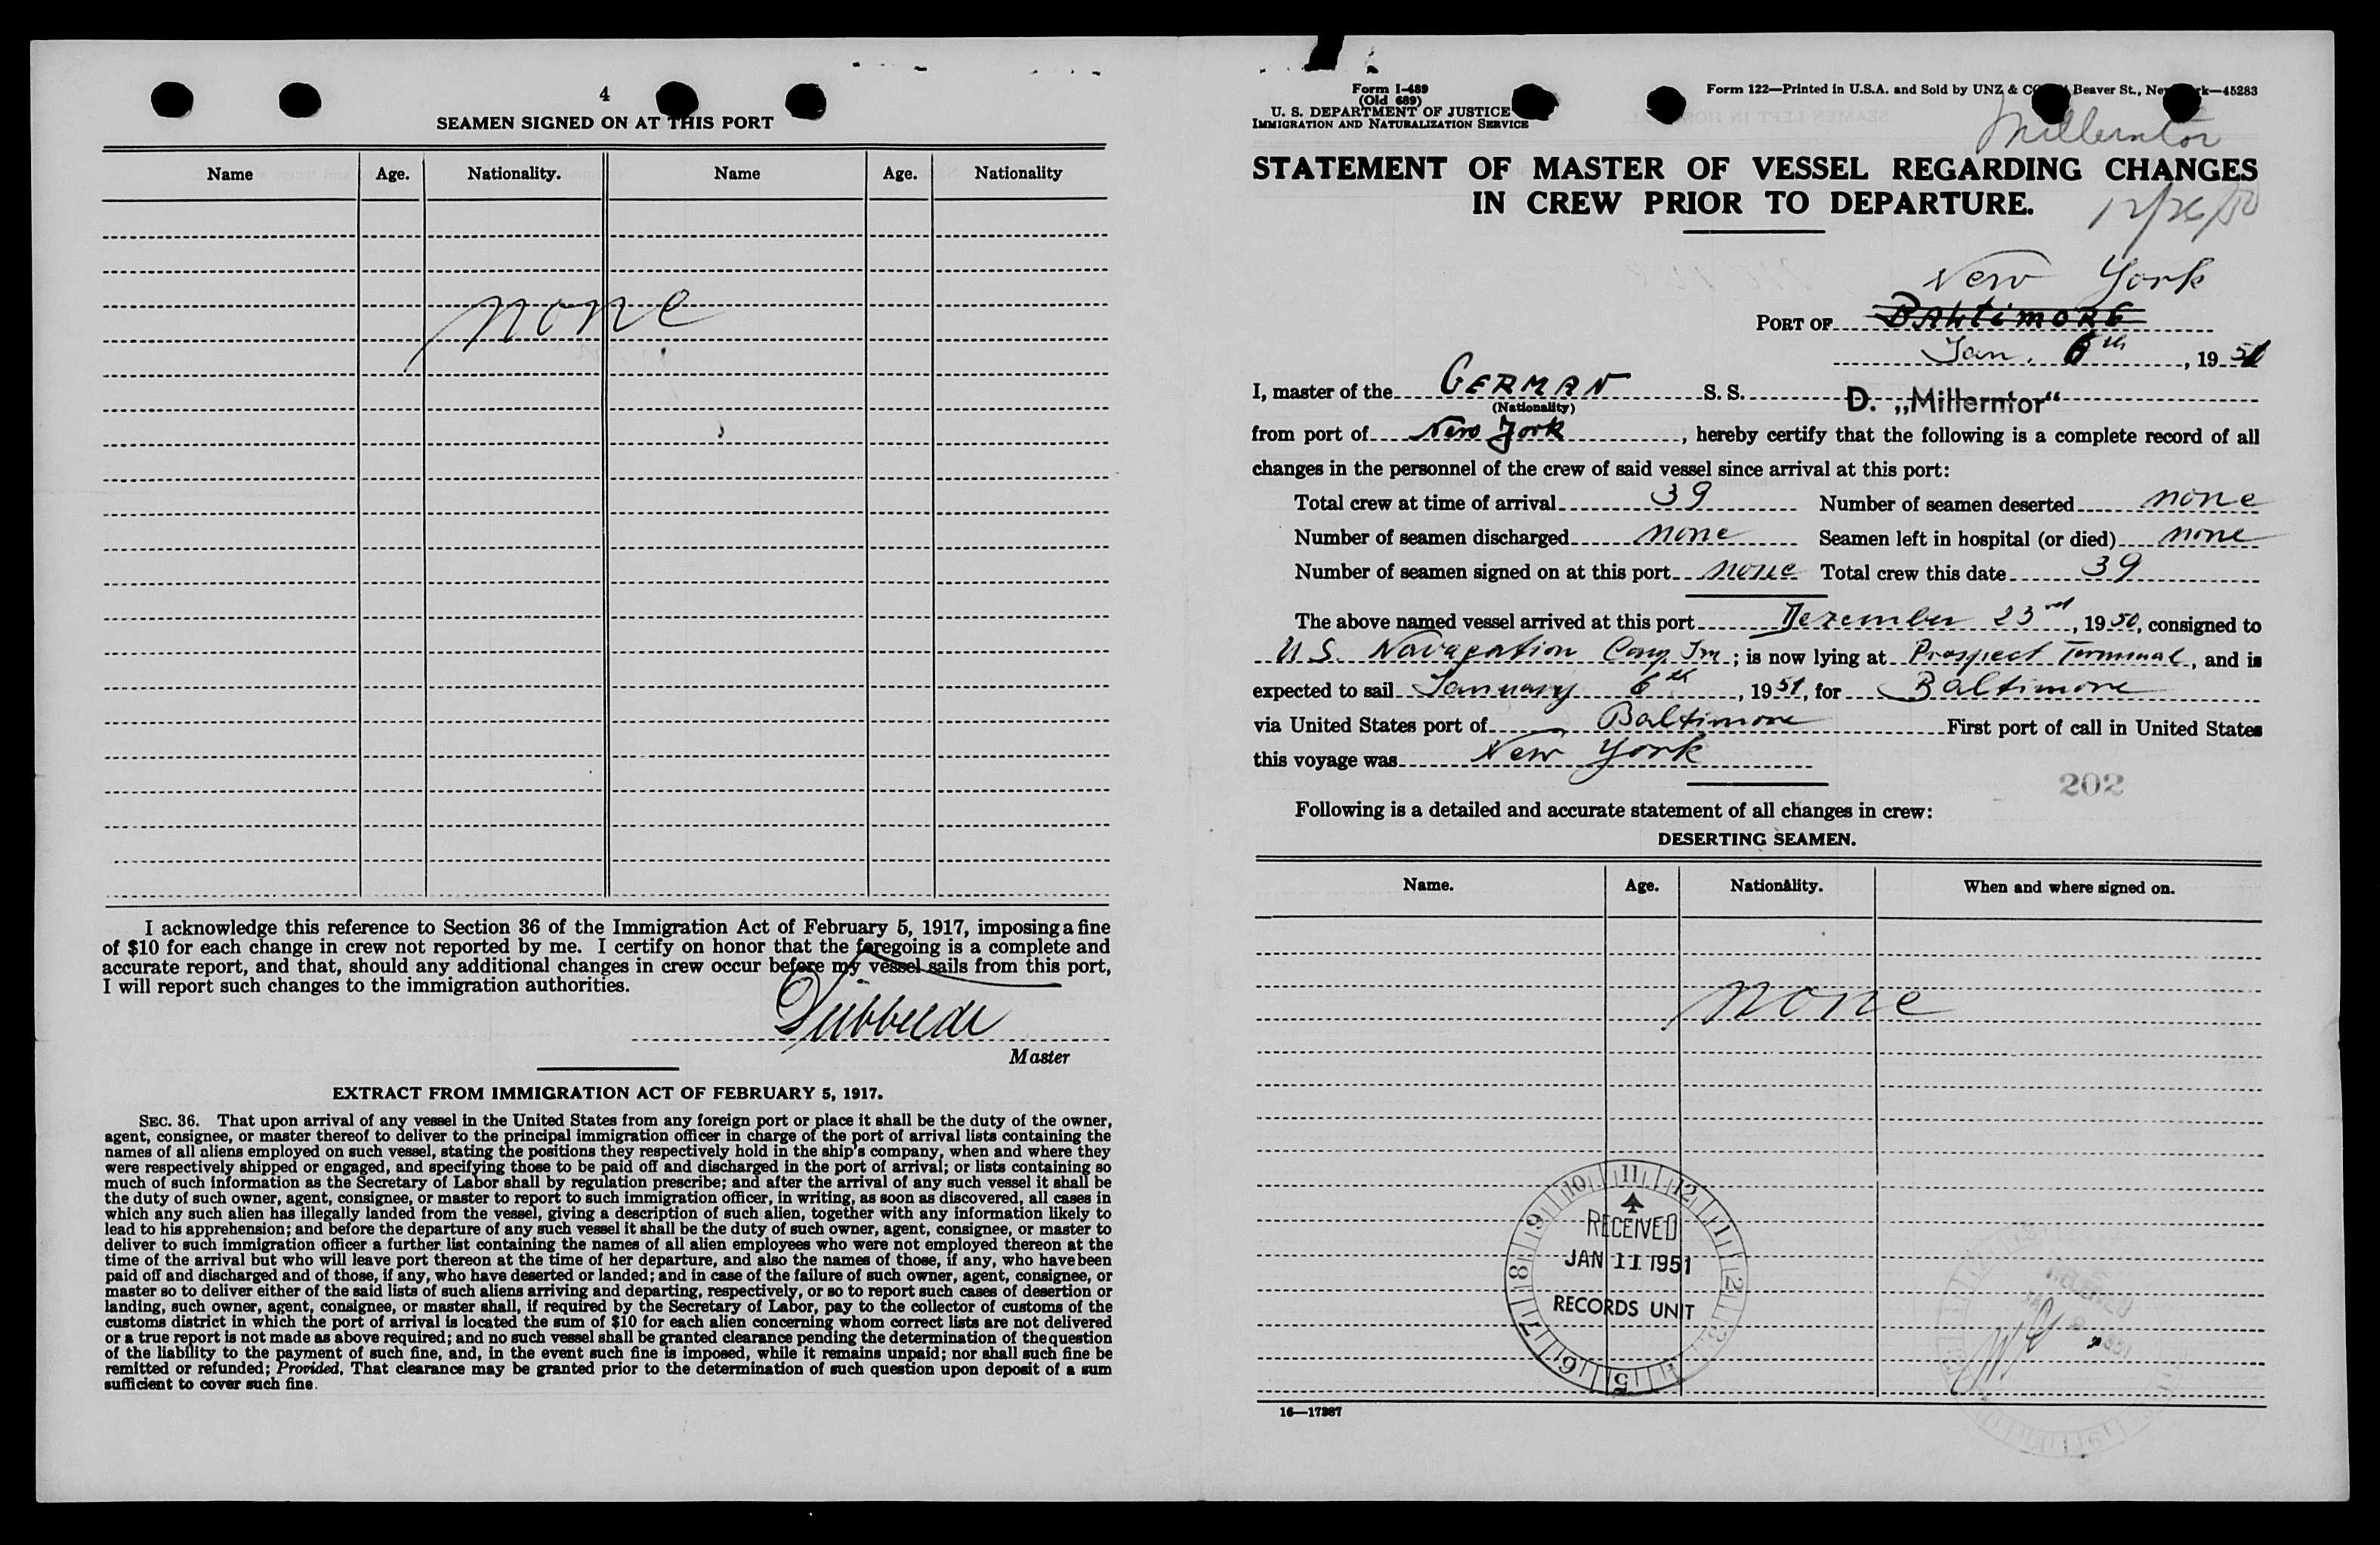 4
SEAMEN SIGNED ON AT THIS PORT
Name Age. Nationality. Name Age. Nationality
none
I acknowledge this reference to Section 36 of the Immigration Act of February 5, 1917, imposing a fine
of $10 for each change in crew not reported by me. I certify on honor that the foregoing is a complete and
accurate report, and that, should any additional changes in crew occur before my vessel sails from this port,
I will report such changes to the immigration authorities.
Master
EXTRACT FROM IMMIGRATION ACT OF FEBRUARY 5, 1917.
SEC. 36. That upon arrival of any vessel in the United States from any foreign port or place it shall be the duty of the owner,
agent, consignee, or master thereof to deliver to the principal immigration officer in charge of the port of arrival lists containing the
names of all aliens employed on such vessel, stating the positions they respectively hold in the ship's company, when and where they
were respectively shipped or engaged, and specifying those to be paid off and discharged in the port of arrival; or lists containing so
much of such information as the Secretary of Labor shall by regulation prescribe; and after the arrival of any such vessel it shall be
the duty of such owner, agent, consignee, or master to report to such immigration officer, in writing, as soon as discovered, all cases in
which any such alien has illegally landed from the vessel, giving a description of such alien, together with any information likely to
lead to his apprehension; and before the departure of any such vessel it shall be the duty of such owner, agent, consignee, or master to
deliver to such immigration officer a further list containing the names of all alien employees who were not employed thereon at the
time of the arrival but who will leave port thereon at the time of her departure, and also the names of those, if any, who have been
paid off and discharged and of those, if any, who have deserted or landed; and in case of the failure of such owner, agent, consignee, or
master so to deliver either of the said lists of such aliens arriving and departing, respectively, or so to report such cases of desertion or
landing, such owner, agent, consignee, or master shall, if required by the Secretary of Labor, pay to the collector of customs of the
customs district in which the port of arrival is located the sum of $10 for each alien concerning whom correct lists are not delivered
or a true report is not made as above required; and no such vessel shall be granted clearance pending the determination of the question
of the liability to the payment of such fine, and, in the event such fine is imposed, while it remains unpaid; nor shall such fine be
remitted or refunded; Provided, That clearance may be granted prior to the determination of such question upon deposit of a sum
sufficient to cover such fine.
Form I-489
(Old 689)
U. S. DEPARTMENT OF JUSTICE
IMMIGRATION AND NATURALIZATION SERVICE
Form 122—Printed in U.S.A. and Sold by UNZ & CO Beaver St., New York—45283
Millerntor
STATEMENT OF MASTER OF VESSEL REGARDING CHANGES
IN CREW PRIOR TO DEPARTURE.
12/26/50
New York
PORT OF BALTIMORE
Jan. 6th, 1951
I, master of the GERMAN S. S. D. „Millerntor“
(Nationality)
from port of New York, hereby certify that the following is a complete record of all
changes in the personnel of the crew of said vessel since arrival at this port:
Total crew at time of arrival 39 Number of seamen deserted none
Number of seamen discharged none Seamen left in hospital (or died) none
Number of seamen signed on at this port none Total crew this date 39
The above named vessel arrived at this port Dezember 23rd, 1950, consigned to
U.S. Navagation Comp. Inc; is now lying at Prospect Terminal, and is
expected to sail January 6th, 1951, for Baltimore
via United States port of Baltimore First port of call in United States
this voyage was New York
202
Following is a detailed and accurate statement of all changes in crew:
DESERTING SEAMEN.
Name. Age. Nationality. When and where signed on.
none
RECEIVED
JAN 11 1951
RECORDS UNIT
16—17387